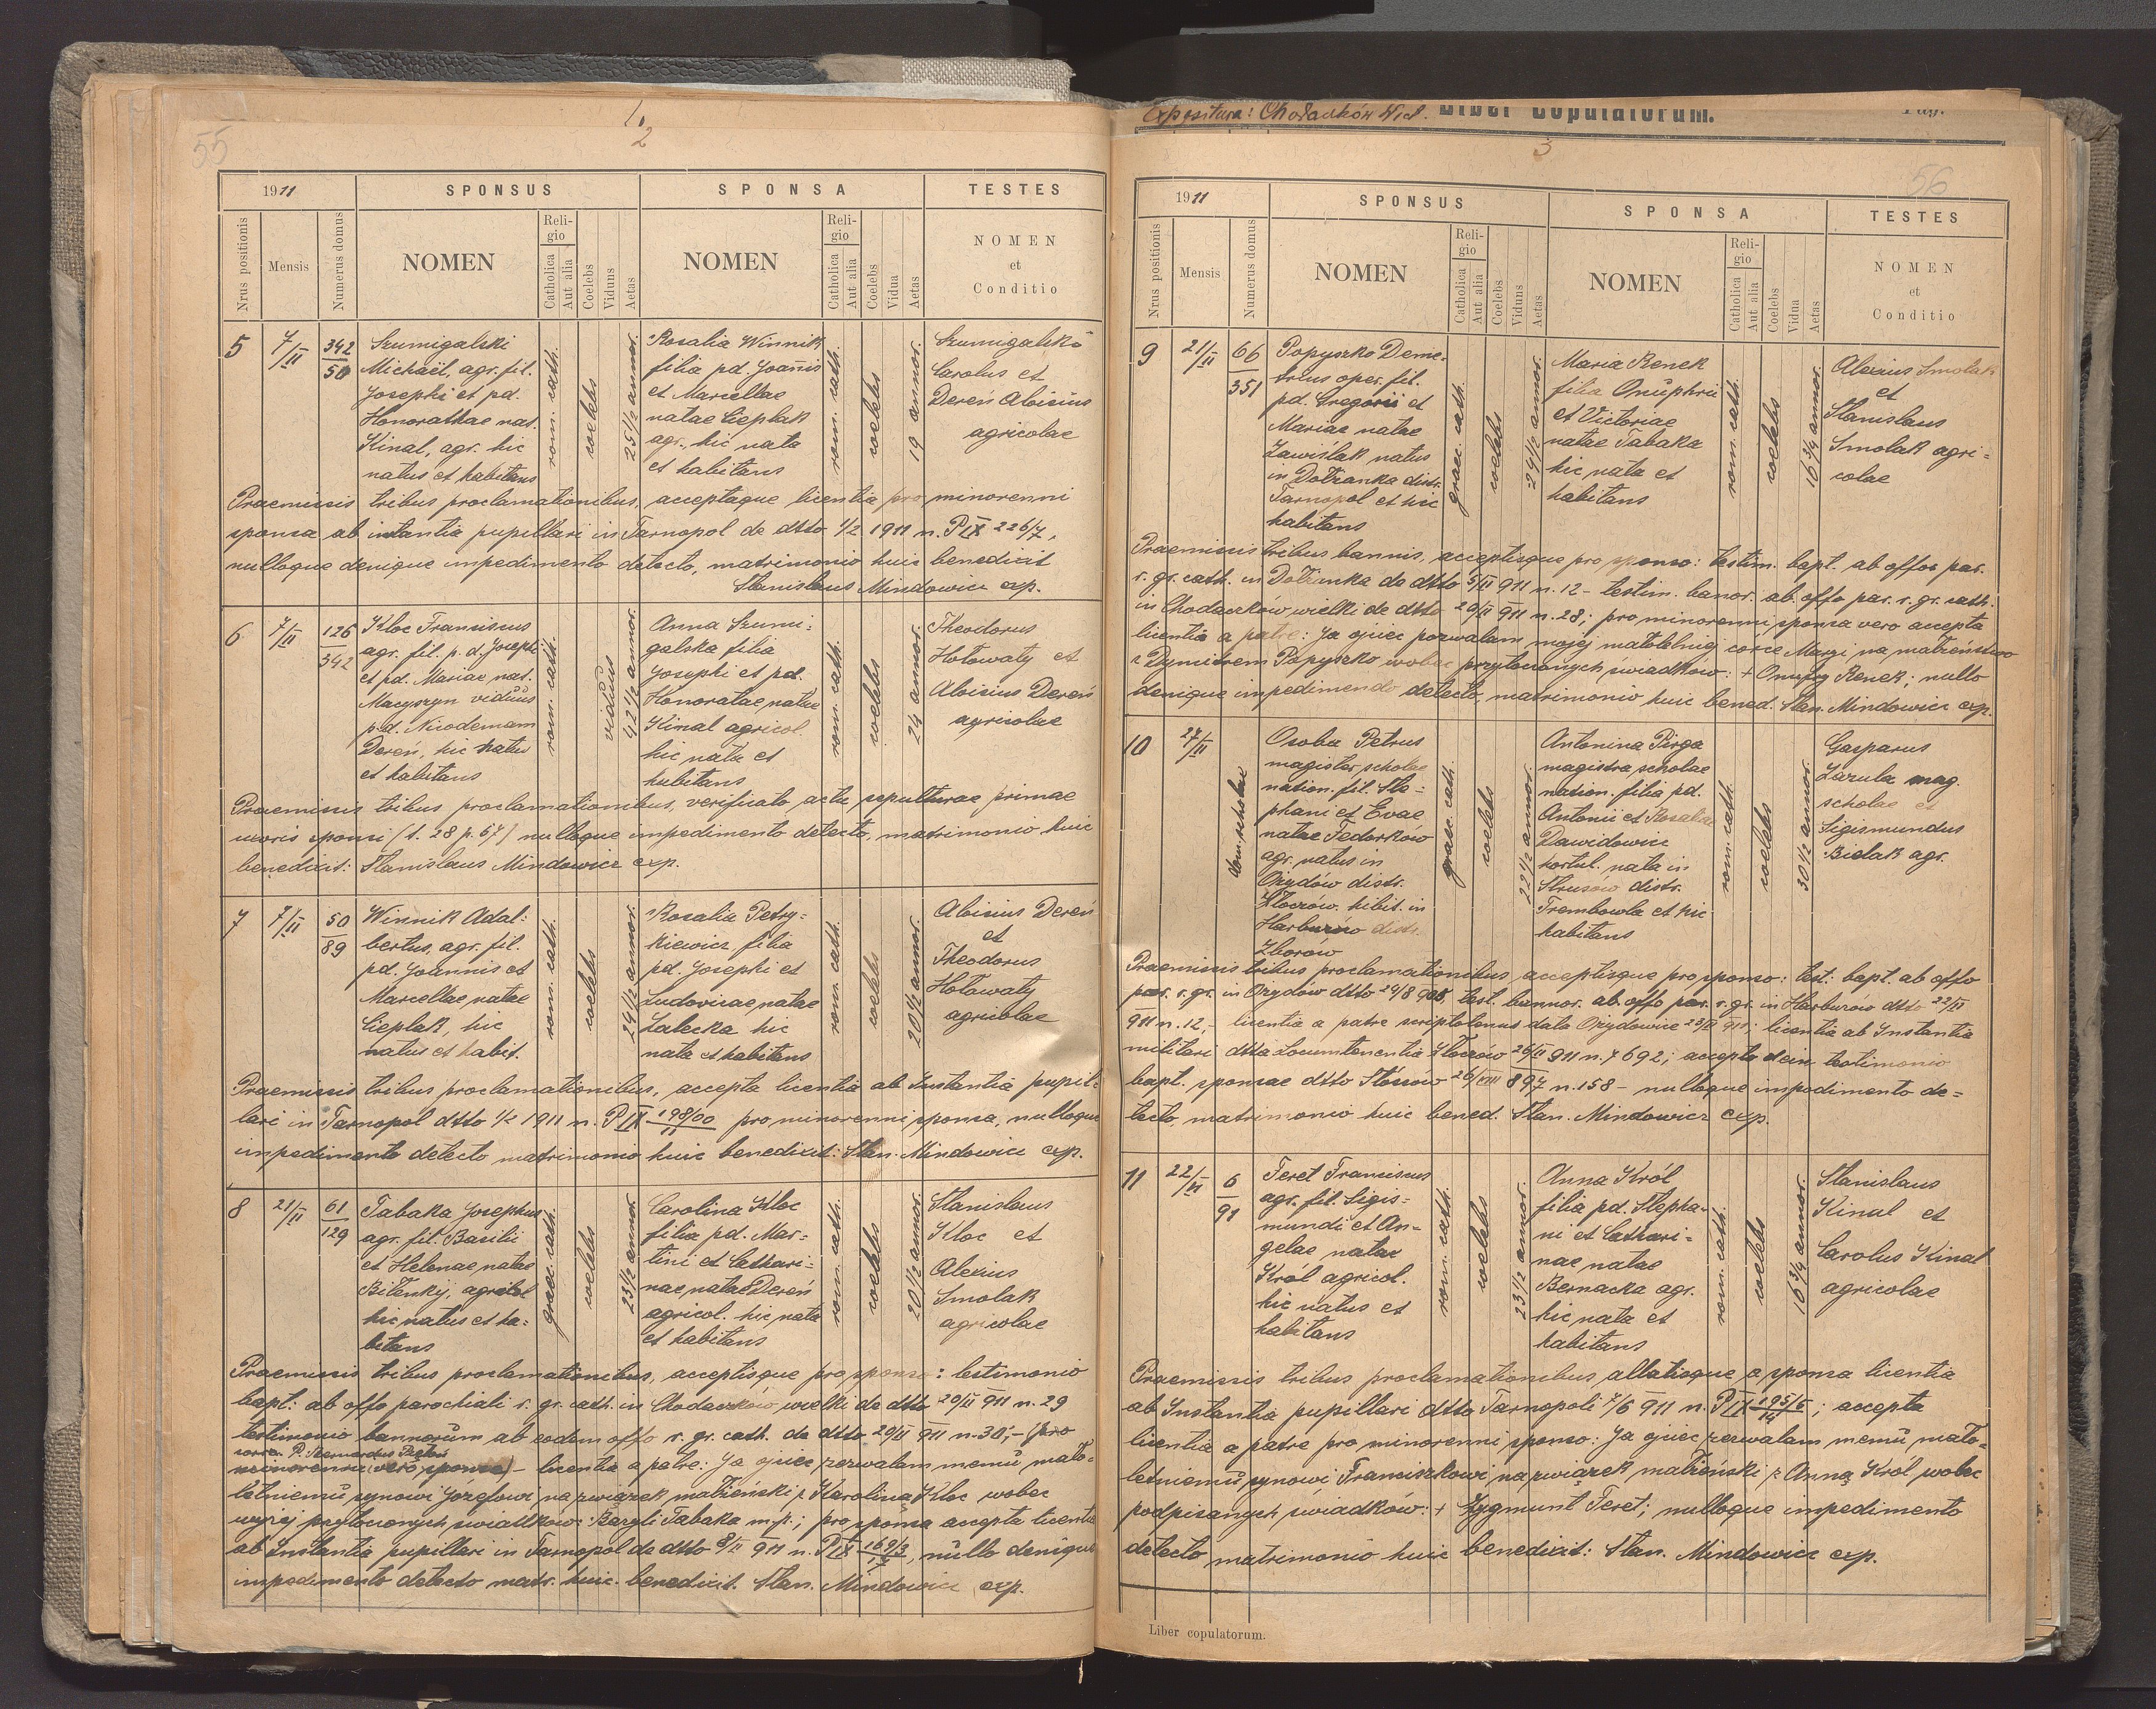 55
1.
2
1911
SPONSUS
SPONSA
TESTES
Nrus positionis
Mensis
Numerus domus
NOMEN
Religio
Catholica
Aut alia
Coelebs
Viduus
Aetas
NOMEN
Religio
Catholica
Aut alia
Coelebs
Vidua
Aetas
NOMEN
et
Conditio
5
7/II
342
50
Szumigalski
Michaël, agr. fil.
Josephi et pd.
Honorathae nat.
Kinal, agr. hic
natus et habitans
rom. cath.
coelebs
25 1/2 annor.
Rosalia Winnik
filia pd. Joannis
et Marcellae
natae Cieplak
agr. hic nata
et habitans
rom. cath.
coelebs
19 annor.
Szumigalski
Carolus et
Dereń Aloisius
agricolae
Praemissis tribus proclamationibus, acceptaque licentia pro minorenni
sponsa ab instantia pupillari in Tarnopol de dtto 1/2 1911 n. P IX 226/7,
nulloque denique impedimento detecto, matrimonio huic benedixit
Stanislaus Mindowicz exp.
6
7/II
126
342
Kloc Franciscus
agr. fil. p. d. Josephi
et pd. Mariae nat.
Macyszyn viduus
p.d. Nicodemam
Dereń, hic natus
et habitans
rom. cath.
viduus
42 1/2 annor.
Anna Szumi-
galska filia
Josephi et pd.
Honoratae natae
Kinal agricol.
hic nata et
habitans
rom. cath.
coelebs
24 annor.
Theodorus
Hołowaty et
Aloisius Dereń
agricolae
Praemissis tribus proclamationibus, verificato actu sepulturae primae
uxoris sponsi (t. 28 p. 67) nulloque impedimento detecto, matrimonio huic
benedixit: Stanislaus Mindowicz exp.
7
7/II
50
89
Winnik Adal-
bertus, agr. fil.
pd. Joannis et
Marcellae natae
Cieplak, hic
natus et habit.
rom. cath.
coelebs
24 1/2 annor.
Rosalia Petry-
kiewicz filia
pd. Josephi et
Ludovicae natae
Zalecka hic
nata et habitans
rom. cath.
coelebs
20 1/2 annor.
Aloisius Dereń
et
Theodorus
Hołowaty
agricolae
Praemissis tribus proclamationibus, accepta licentia ab Instantia pupil-
lari in Tarnopol dtto 1/2 1911 n. P IX 198/00/11 pro minorenni sponsa, nulloque
impedimento detecto matrimonio huic benedixit: Stan. Mindowicz exp.
8
21/II
61
129
Tabaka Josephus
agr. fil. Basilii
et Helenae natae
Biłenkij, agricol
hic natus et ha-
bitans
graec. cath.
coelebs
23 1/2 annor.
Carolina Kloc
filia pd. Mar-
tini et Cathari-
nae natae Dereń
agricol. hic nata
et habitans
rom. cath.
coelebs
20 1/2 annor.
Stanislaus
Kloc et
Alexius
Smolak
agricolae
Praemissis tribus proclamationibus, acceptisque pro sponso: testimonio
bapt: ab offo parochiali r. gr. cath. in Chodaczków wielki de dtto 20/II 911 n. 29
testimonio bannorum ab eodem offo r. gr. cath. de dtto 20/II 911 n. 30; – (pro
minorenni vero sponso) – licentia a patre: Ja ojciec zezwalam memu mało-
letniemu synowi Józefowi na związek małżeński z Karoliną Kloc wobec
wyżej przytoczonych swiadków: Bazyli Tabaka mp.; pro sponsa accepta licentia
ab Instantia pupillari in Tarnopol de dtto 8/II 911 n. P IX 169/3, nullo denique
impedimento detecto matr. huic benedixit. Stan. Mindowicz exp.
Expositura: Chodaczków Wiel.
Liber Copulatorum.
Pag.
3
56
1911
SPONSUS
SPONSA
TESTES
Nrus positionis
Mensis
Numerus domus
NOMEN
Religio
Catholica
Aut alia
Coelebs
Viduus
Aetas
NOMEN
Religio
Catholica
Aut alia
Coelebs
Vidua
Aetas
NOMEN
et
Conditio
9
21/II
66
351
Popyszko Deme-
trius oper. fil.
pd. Gregorii et
Mariae natae
Zawiślak natus
in Dołżanka distr.
Tarnopol et hic
habitans
graec. cath.
coelebs
24 1/2 annor.
Maria Renek
filia Onuphrii
et Victoriae
natae Tabaka
hic nata et
habitans
rom. cath.
coelebs
16 3/4 annor.
Alexius Smolak
et
Stanislaus
Smolak agri-
colae
Praemissis tribus bannis, acceptisque pro sponso: testim. bapt. ab offoe par.
r. gr. cath. in Dołżanka de dtto 5/II 911 n. 12 – testim. banor. ab offo par. r. gr. cath.
in Chodaczków wielki de dtto 20/II 911 n. 28; pro minorenni sponsa vero accepta
licentia a patre: Ja ojciec pozwalam mojej małoletniej córce Maryi na małżeństwo
z Dymitrem Papyszko wobec przytoczonych świadków: + Onufry Renek; nullo
denique impedimento detecto, matrimonio huic bened. Stan. Mindowicz exp.
10
27/II
dom. scholae
Osoba Petrus
magister scholae
nation. fil. Ste-
phani et Evae
natae Fedorków
agr. natus in
Ożydów distr.
Złoczów. hibit. in
Harbuzów distr.
Zborów
graec. cath.
coelebs
22 1/2 annor.
Antonina Pirga
magistra scholae
nation. filia pd.
Antonii et Rosaliae
Dawidowicz
hortul. nata in
Strusów distr.
Trembowla et hic
habitans
rom. cath.
coelebs
30 1/2 annor.
Gasparus
Zazula mag.
scholae et
Sigismundus
Bielak agr.
Praemissis tribus proclamationibus, acceptisque pro sponso: test: bapt. ab offo
par. r. gr. in Ożydów dtto 24/8 908, test. bannor. ab. offo par. r. gr. in Harbuzów dtto 22/II
911 n. 12, – licentia a patre scriptotenus data Ożydowice 23/II 911; licentia ab Instantia
militari dtta Locumtenentia Złoczów 26/II 911 n. 7692; accepto dein testimonio
bapt. sponsae dtto 26/VIII 897 n. 158 – nulloque impedimento de-
tecto, matrimonio huic bened. Stan. Mindowicz exp.
11
22/VI
6
91
Teret Franciscus
agr. fil. Sigis-
mundi et An-
gelae natae
Król agricol.
hic natus et
habitans
rom. cath.
coelebs
23 1/2 annor.
Anna Król
filia pd. Stepha-
ni et Cathari-
nae natae
Bernacka agr.
hic nata et
habitans
rom. cath.
coelebs
16 3/4 annor.
Stanislaus
Kinal et
Carolus Kinal
agricolae
Praemissis tribus proclamationibus, allatisque a sponsa licentia
ab Instantia pupillari dtto Tarnopoli 7/6 911 n. P IX 195/5/14; accepta
licentia a patre pro minorenni sponso: Ja ojciec zezwalam memu mało-
letniemu synowi Franciszkowi na związek małżeński z Anną Król wobec
podpisanych świadków: + Zygmunt Teret; nulloque impedimento
detecto matrimonio huic benedixit: Stan. Mindowicz exp.
Liber copulatorum.